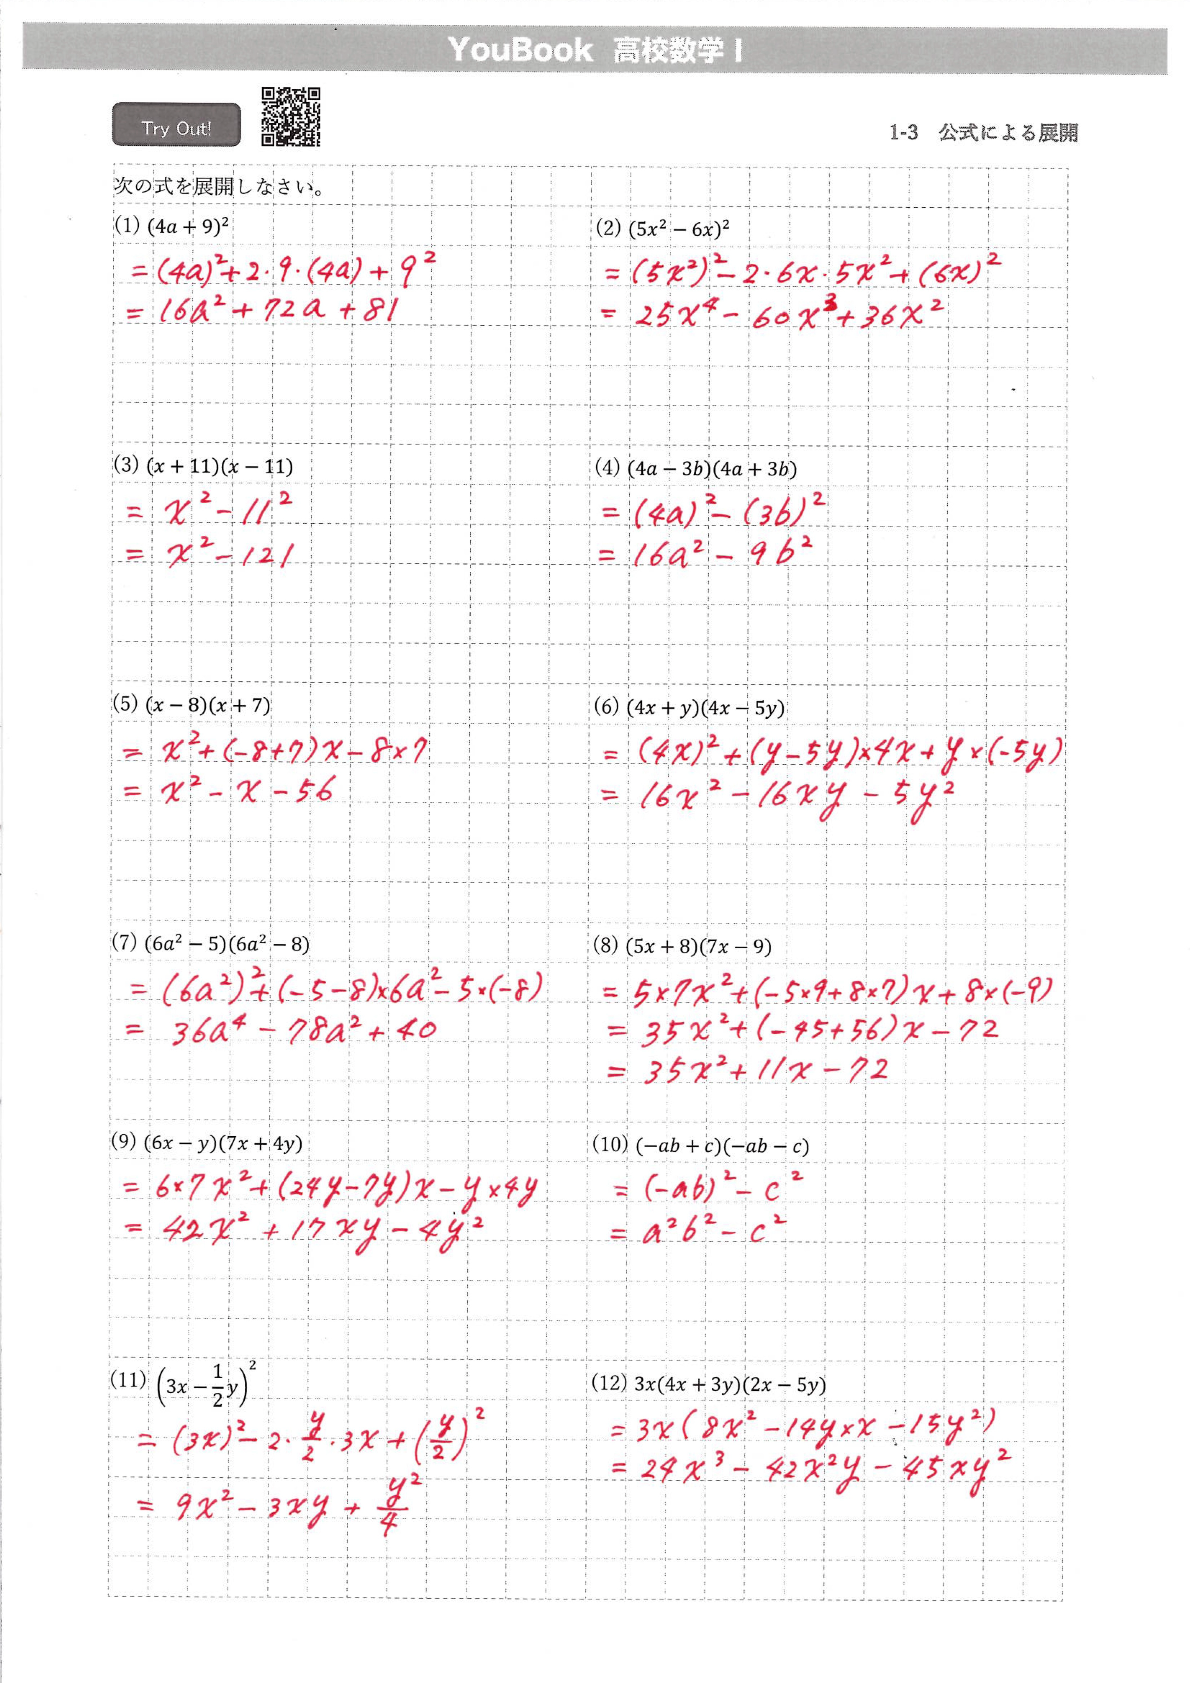 YouBook 高校数学 I
Try Out!
1-3 公式による展開
次の式を展開しなさい。
(1) (4a + 9)²
= (4a)² + 2・9・(4a) + 9²
= 16a² + 72a + 81
(2) (5x² − 6x)²
= (5x²)² − 2・6x・5x² + (6x)²
= 25x⁴ − 60x³ + 36x²
(3) (x + 11)(x − 11)
= x² − 11²
= x² − 121
(4) (4a − 3b)(4a + 3b)
= (4a)² − (3b)²
= 16a² − 9b²
(5) (x − 8)(x + 7)
= x² + (−8+7)x − 8×7
= x² − x − 56
(6) (4x + y)(4x − 5y)
= (4x)² + (y−5y)×4x + y×(−5y)
= 16x² − 16xy − 5y²
(7) (6a² − 5)(6a² − 8)
= (6a²)² + (−5−8)×6a² − 5×(−8)
= 36a⁴ − 78a² + 40
(8) (5x + 8)(7x − 9)
= 5×7x² + (−5×9+8×7)x + 8×(−9)
= 35x² + (−45+56)x − 72
= 35x² + 11x − 72
(9) (6x − y)(7x + 4y)
= 6×7x² + (24y−7y)x − y×4y
= 42x² + 17xy − 4y²
(10) (−ab + c)(−ab − c)
= (−ab)² − c²
= a²b² − c²
(11) (3x − 1/2 y)²
= (3x)² − 2・y/2・3x + (y/2)²
= 9x² − 3xy + y²/4
(12) 3x(4x + 3y)(2x − 5y)
= 3x(8x² − 14y×x − 15y²)
= 24x³ − 42x²y − 45xy²